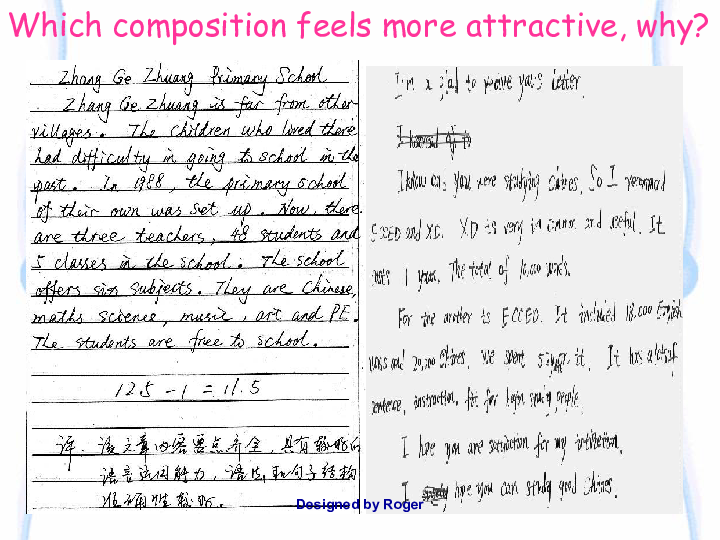 Which composition feels more attractive, why?
Zhang Ge Zhuang Primary School
Zhang Ge Zhuang is far from other
villages. The children who lived there
had difficulty in going to school in the
past. In 1988, the primary school
of their own was set up. Now, there
are three teachers, 48 students and
5 classes in the school. The school
offers six subjects. They are Chinese,
maths science, music, art and PE.
The students are free to school.
12.5 - 1 = 11.5
评. 该文章内容要点齐全, 具有较
语言运用能力, 语法 和句子结构
准确性较
I'm x glad to your letter.
I know you were studying Chines. So I
ECCED and XD. XD is very in and useful. It
1 years. The total of 10,000 words.
For the another is ECCED. It included 18,000 English
and 20,000 Chines. We spent 5 it. It has
sentence, instruction. for
I hope you are for my
I hope you can study good Chines.
Designed by Roger